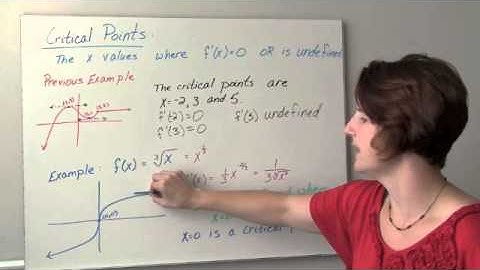 Critical Points:
The x values where f'(x)=0 OR is undefined
Previous Example
The critical points are
x=-2, 3 and 5.
f'(2)=0 f'(5) undefined
f'(3)=0
Example: f(x) = ∛x = x^⅓
(x) = ⅓ x^-⅔ = 1/(3∛x²)
where
x=0 is a critical